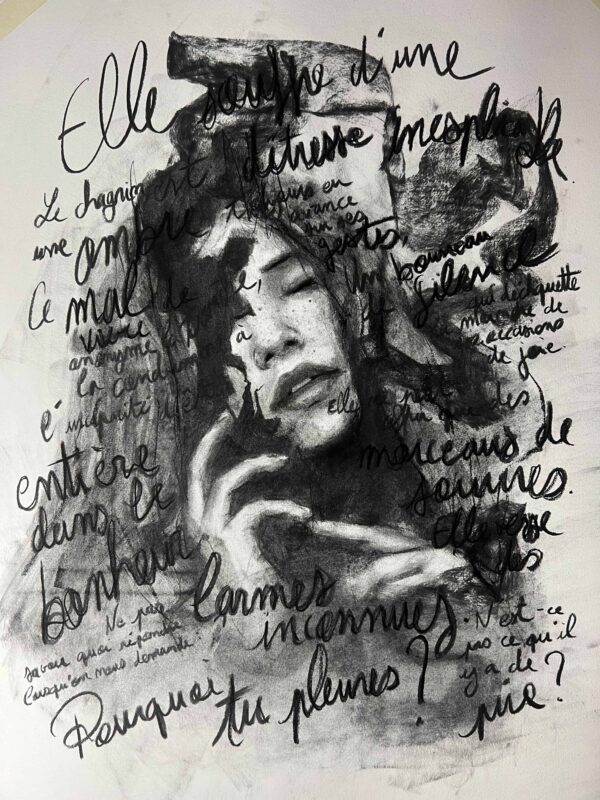 Elle souffre d'une
détresse inexplicable.
Le chagrin est
une ombre toujours en
avance
sur ses
gestes,
Un bourreau
de silence
qui déchiquette
de
occasions
de joie.
Ce mal de
vivre
anonyme
la condamne à
l'incapacité d'être
entière
dans le
bonheur
Elle ne peut
offrir que des
morceaux de
sourires.
Elle verse
des
larmes
inconnues.
Ne pas
savoir quoi répondre
lorsqu'on nous demande :
Pourquoi tu pleures ?
N'est-ce
pas ce qu'il
y a de
pire ?